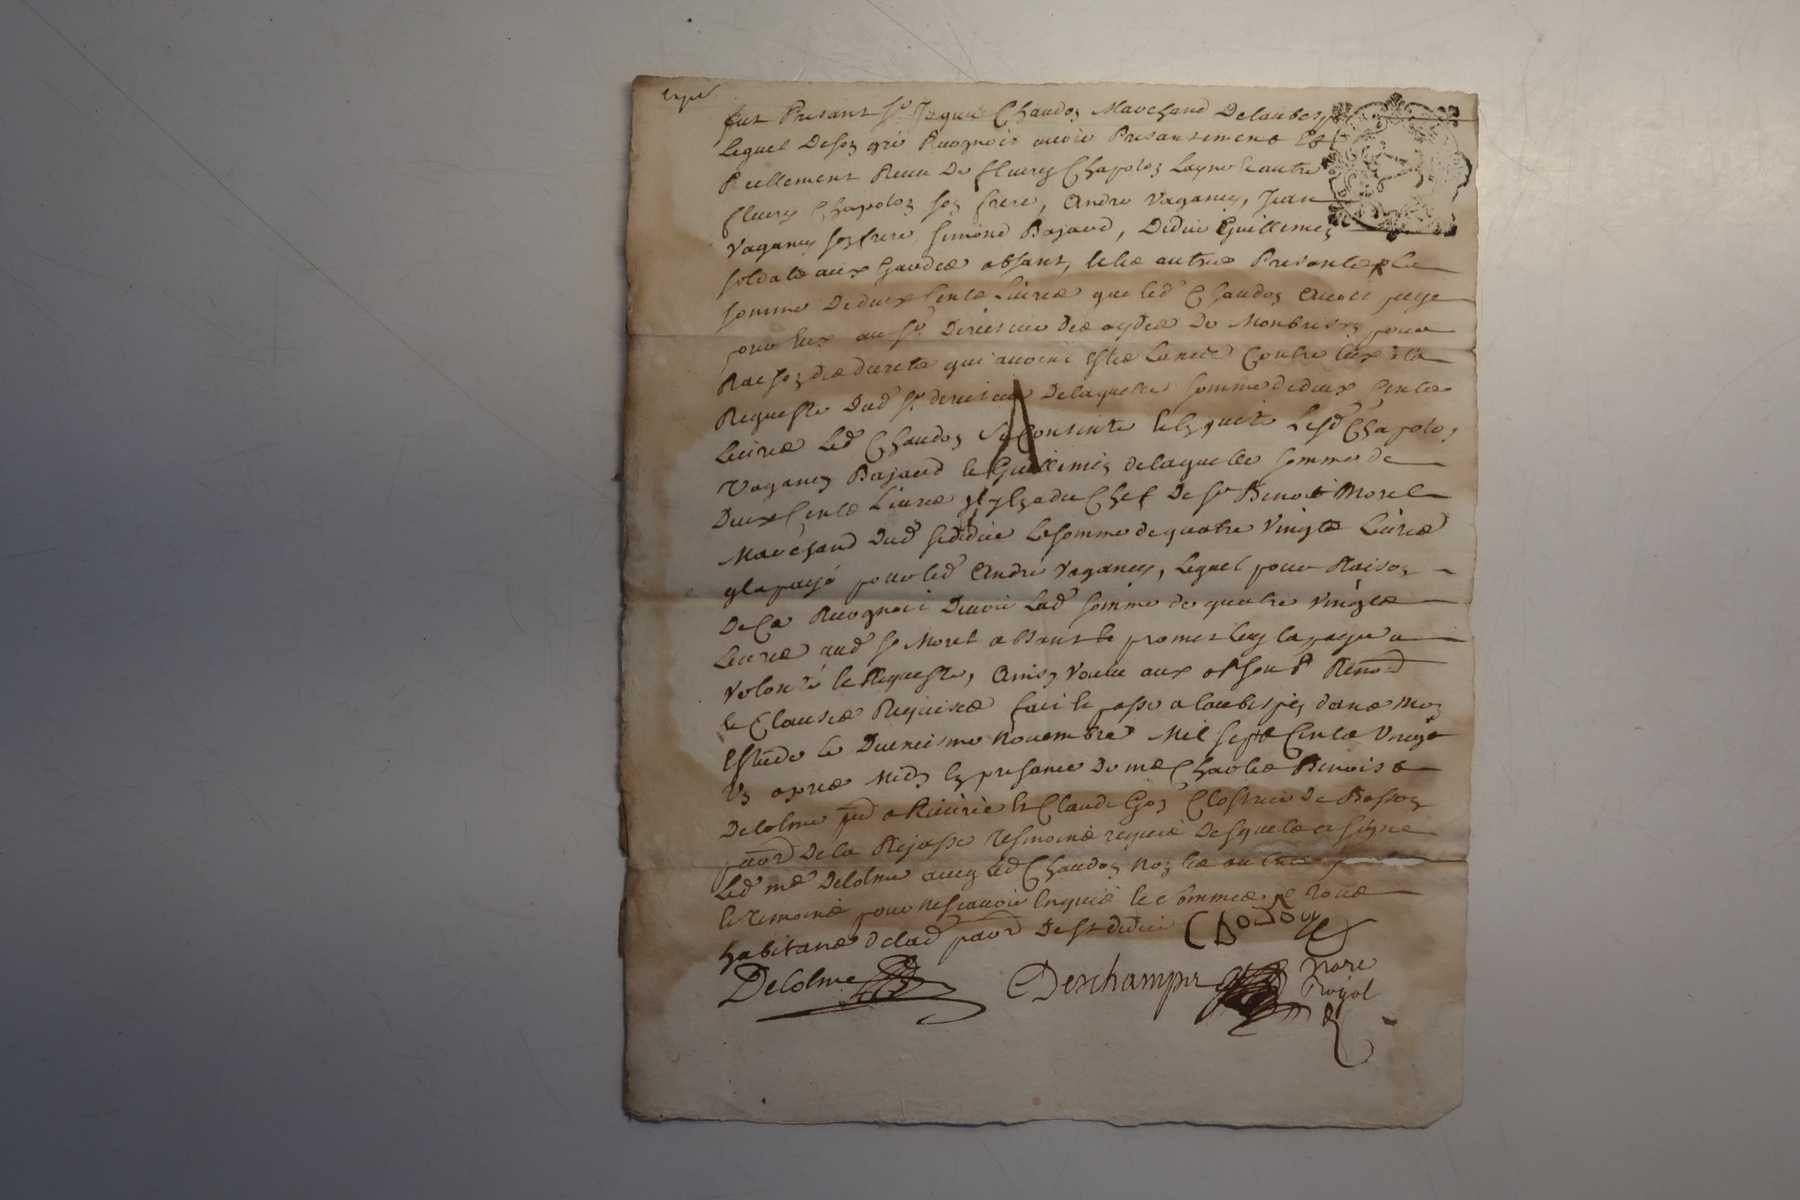 fut Presant Sr Jaque Chaudon Marchand Delaubes
Lequel Deson gré Recognoit avoir Presantement Et
Reellement Receu De fleury Chapolon Layne Et autre
fleury Chapolon son frere, Andre Vaganey, Jean
Vaganey son frere, Simond Bajard, Didier Guillemin
soldats aux Gardes absant, Et les autres Presants La
somme De deux Cents Livres que led Chaudon avoit paye
pour Eux au Sr Des aydes De Monbrison pour
Raison des decrets qui avoint estes Lancé Contre Eux a la
Requeste Dud Sr De laquelle somme de deux Cents
Livres Led Chaudon se Contente Et En quite Lesd Chapolon,
Vaganey Bajard Et Guillemin de laquelle somme de
Deux Cents Livres il y En a du Chef De Sr Benoit Morel
Marchand Dud St didier La somme de quatre Vingts Livres
qu'il a payé pour led André Vaganey, Lequel pour Raison
De Ce Recognoit Devoir Lad somme de quatre Vingts
Livres aud Sr Morel absant Et promet Luy la payer a
Volonté Et Requeste, Ainsy Voulu aux obon Pne Renond
Et Clauses Requises fait Et passe a laubespin dans mon
Estude Le Dixneufvieme Novembre Mil sept Cents Vingt
Un apres Midy En presance De me Charles Benoist
Delolme a Riverie Et Claude Clost De Basson
parr De la Rejasse tesmoins requis Desquels a signe
Led me Delolme avec led Chaudon non les autres parties
Et temoins pour ne scavoir Enquis Et Sommes Et tous
habitans de lad parr De St didier Chodon
Delolme Deschamps Nore
Royal